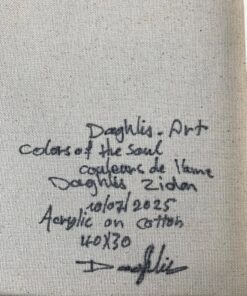 Daghlis-Art
colors of the soul
couleurs de l'ame
Daghlis Zidan
10/07/2025
Acrylic on cotton
40X30
Daghlis